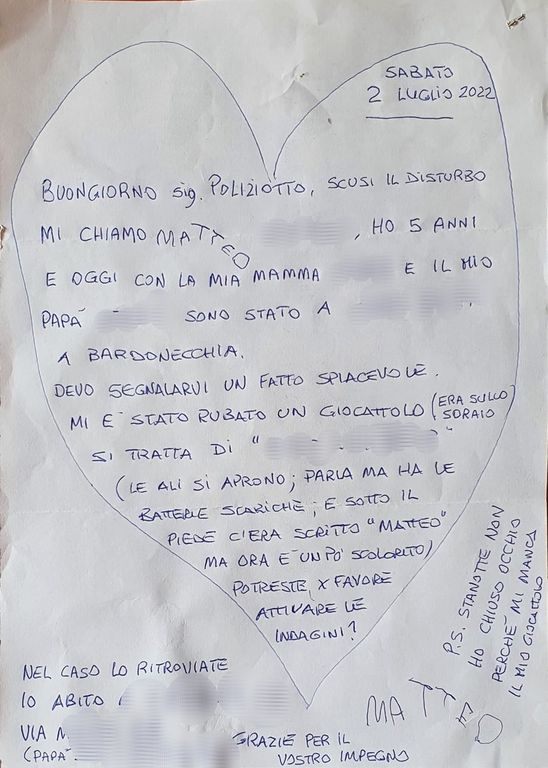 SABATO
2 LUGLIO 2022
BUONGIORNO Sig. POLIZIOTTO, SCUSI IL DISTURBO
MI CHIAMO MATTEO , HO 5 ANNI
E OGGI CON LA MIA MAMMA E IL MIO
PAPÀ SONO STATO A ,
A BARDONECCHIA.
DEVO SEGNALARVI UN FATTO SPIACEVOLE.
MI È STATO RUBATO UN GIOCATTOLO (ERA SULLO
SDRAIO)
SI TRATTA DI " "
(LE ALI SI APRONO; PARLA MA HA LE
BATTERIE SCARICHE; E SOTTO IL
PIEDE C'ERA SCRITTO "MATTEO"
MA ORA È UN PO' SCOLORITO)
POTRESTE, X FAVORE
ATTIVARE LE
INDAGINI?
P.S. STANOTTE NON
HO CHIUSO OCCHIO
PERCHÈ MI MANCA
IL MIO GIOCATTOLO
NEL CASO LO RITROVIATE
IO ABITO
VIA
(PAPÀ
MATTEO
GRAZIE PER IL
VOSTRO IMPEGNO